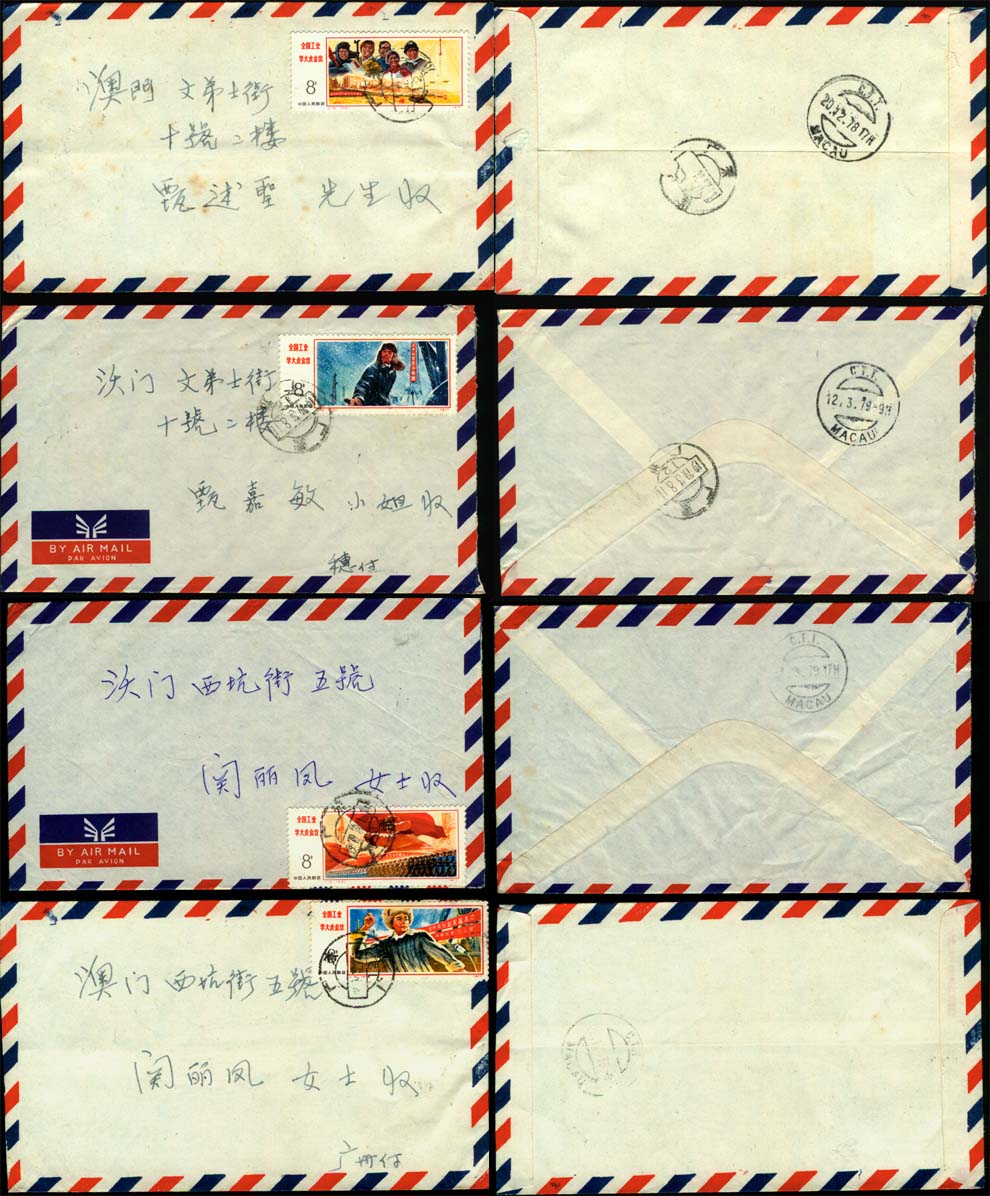 全国工业
学大庆会议
8分
中国人民邮政
澳門 文弟士街
十號二樓
甄述聖 先生收
C.T.T.
20.12.78 17H
MACAU
全国工业
学大庆会议
8分
中国人民邮政
汏门 文弟士街
十號二樓
甄嘉敏 小姐收
BY AIR MAIL
PAR AVION
穗付
C.T.T.
12.3.79-9H
MACAU
汏门 西坑街 五號
関丽凤 女士收
全国工业
学大庆会议
8分
中国人民邮政
BY AIR MAIL
PAR AVION
C.T.T.
79 17H
MACAU
全国工业
学大庆会议
中国人民邮政
澳门 西坑街 五號
関丽凤 女士收
广州付